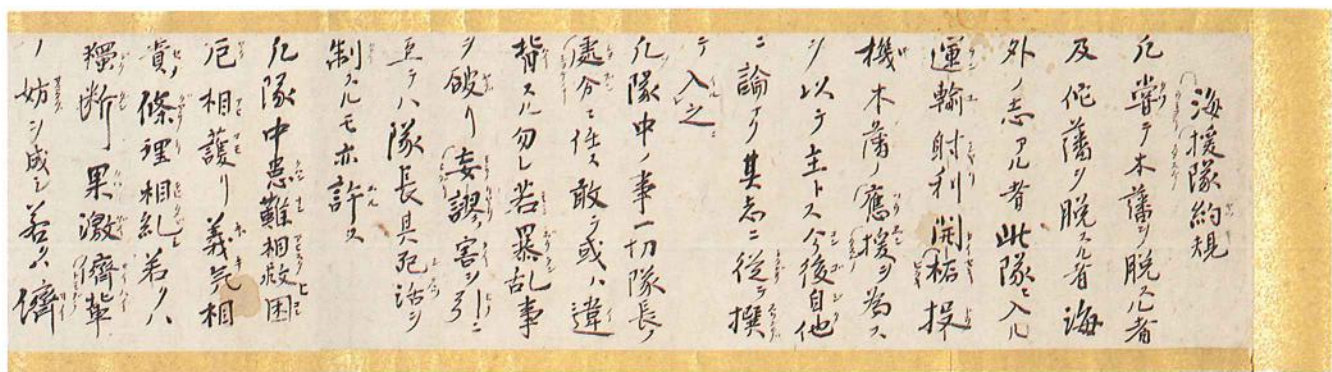 海援隊約規
凡嘗テ本藩ヲ脱スル者
及佗藩ヲ脱スル者海
外ノ志アル者此隊ニ入ル
運輸射利開柘投
機本藩ノ應援ヲ為ス
ヲ以テ主トス今後自他
ニ論ナク其志ニ従テ撰
テ入之
凡隊中ノ事一切隊長ノ
處分ニ任ス敢テ或ハ違
背スル勿レ若暴乱事
ヲ破リ妄謬害ヲ引ニ
至テハ隊長其死活ヲ
制スルモ亦許ス
凡隊中患難相救困
厄相護リ義気相
責條理相糺シ若クハ
獨断果激儕輩
ノ妨ヲ成シ若クハ儕